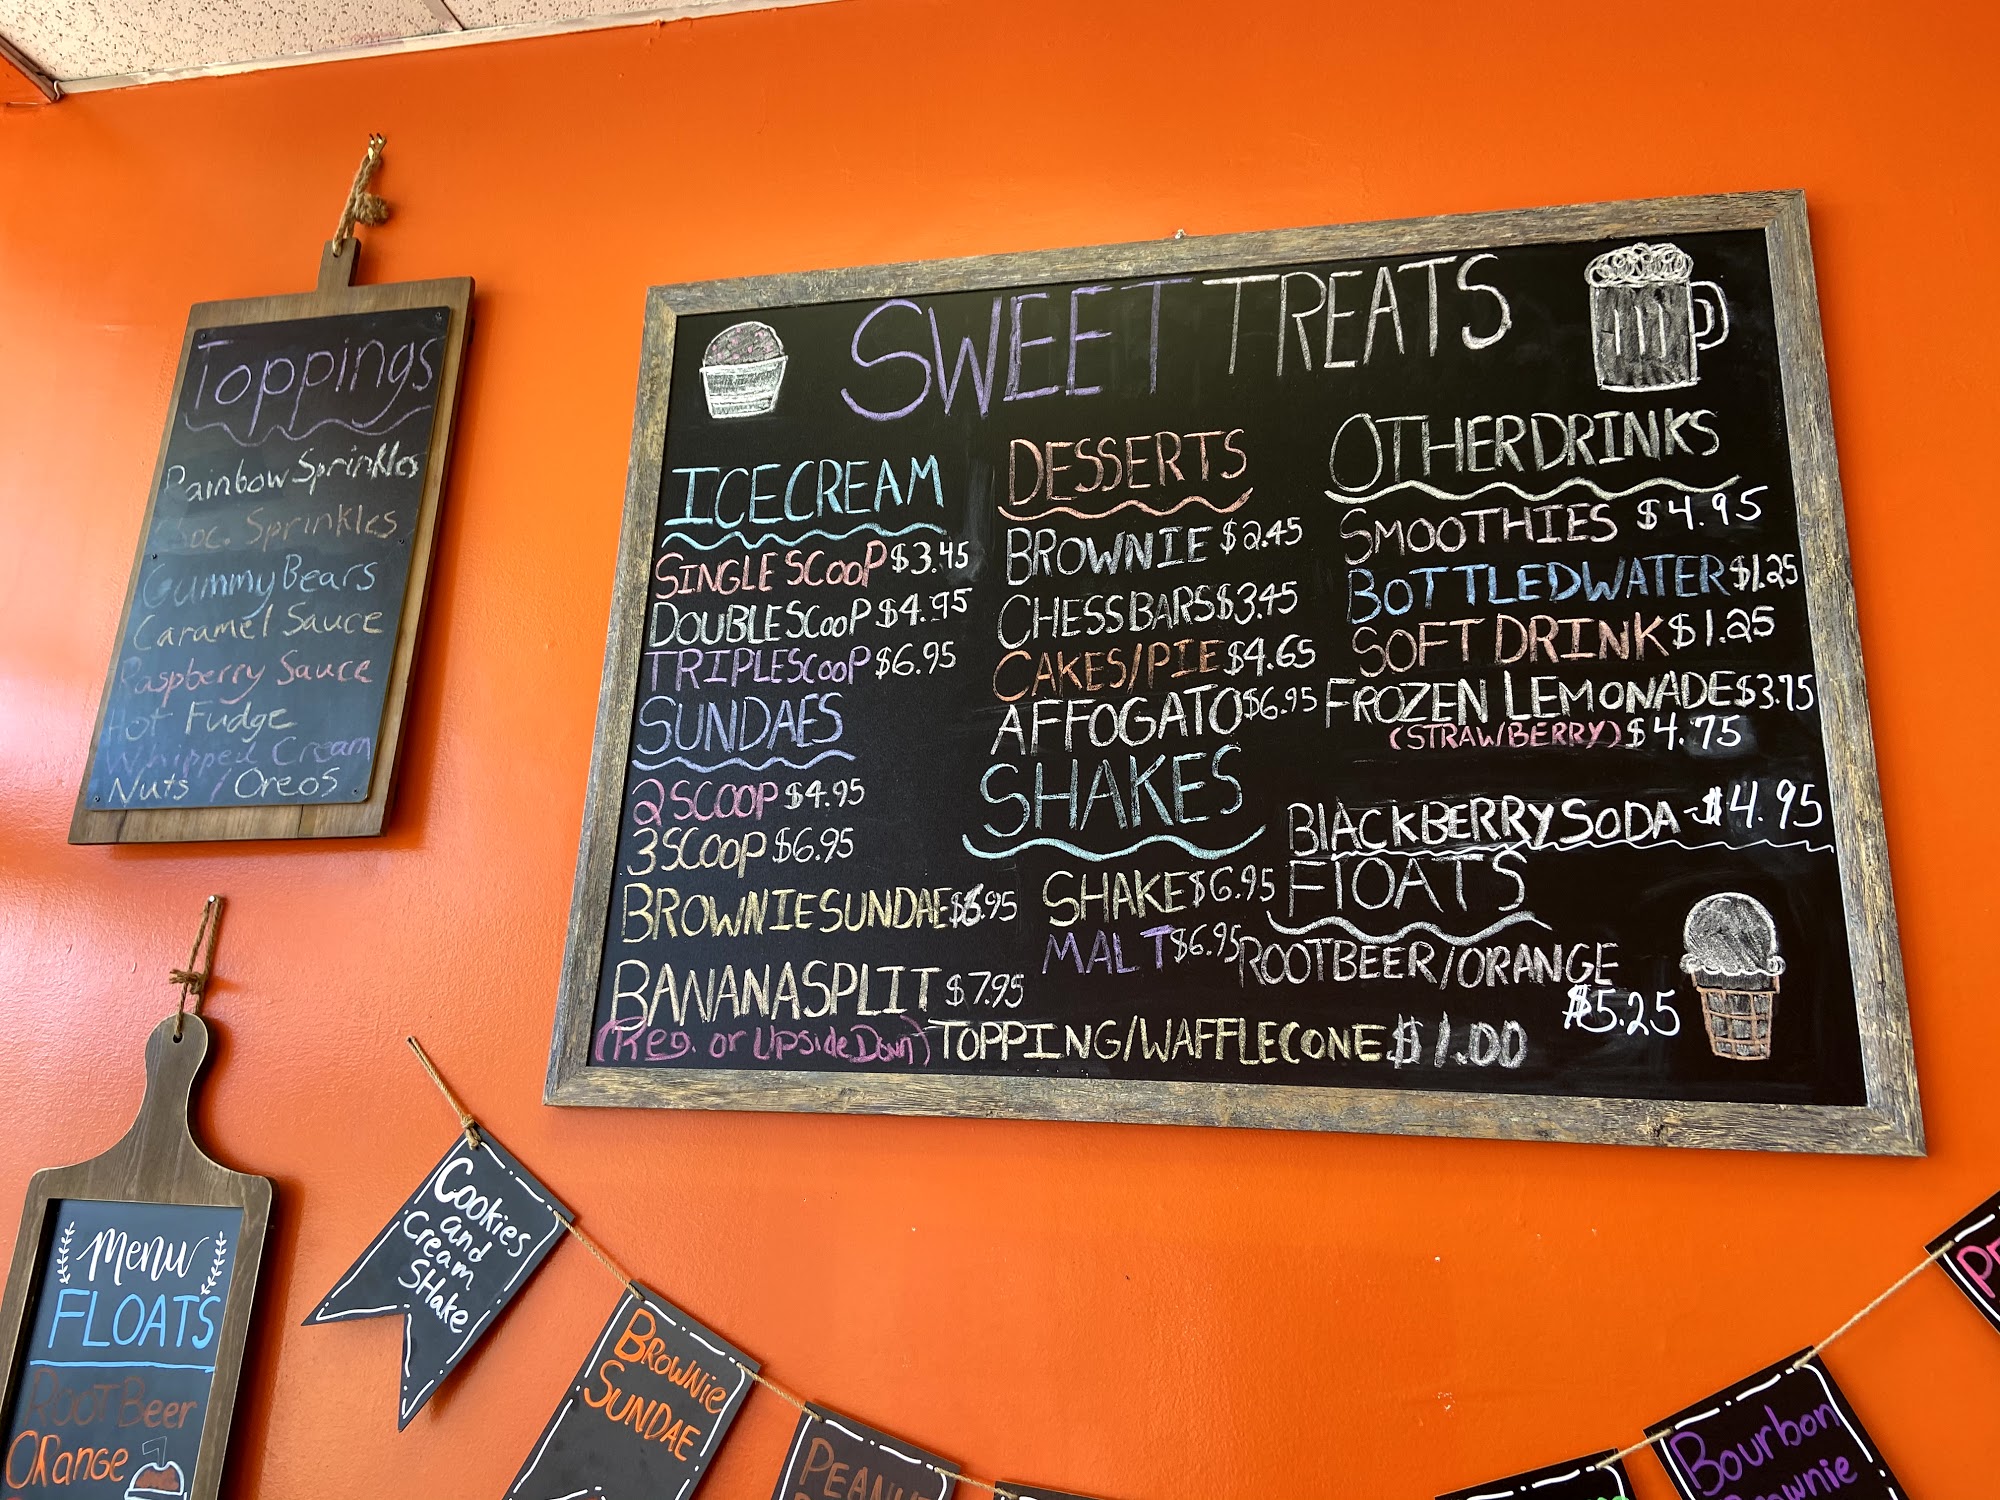 Toppings
Rainbow Sprinkles
Choc. Sprinkles
Gummy Bears
Caramel Sauce
Raspberry Sauce
Hot Fudge
Whipped Cream
Nuts / Oreos
SWEET TREATS
ICE CREAM
SINGLE SCOOP $3.45
DOUBLE SCOOP $4.95
TRIPLE SCOOP $6.95
SUNDAES
2 SCOOP $4.95
3 SCOOP $6.95
BROWNIE SUNDAE $6.95
BANANA SPLIT $7.95
(Reg. or Upside Down)
DESSERTS
BROWNIE $2.45
CHESS BARS $3.45
CAKES/PIE $4.65
AFFOGATO $6.95
SHAKES
SHAKE $6.95
MALT $6.95
TOPPING/WAFFLE CONE $1.00
OTHER DRINKS
SMOOTHIES $4.95
BOTTLED WATER $1.25
SOFT DRINK $1.25
FROZEN LEMONADE $3.75
(STRAWBERRY) $4.75
BLACKBERRY SODA - $4.95
FLOATS
ROOTBEER/ORANGE
$5.25
Menu
FLOATS
ROOT Beer
ORange
Cookies
and
Cream
SHake
BROWNie
SUNDAE
PEANUT
Bourbon
Brownie